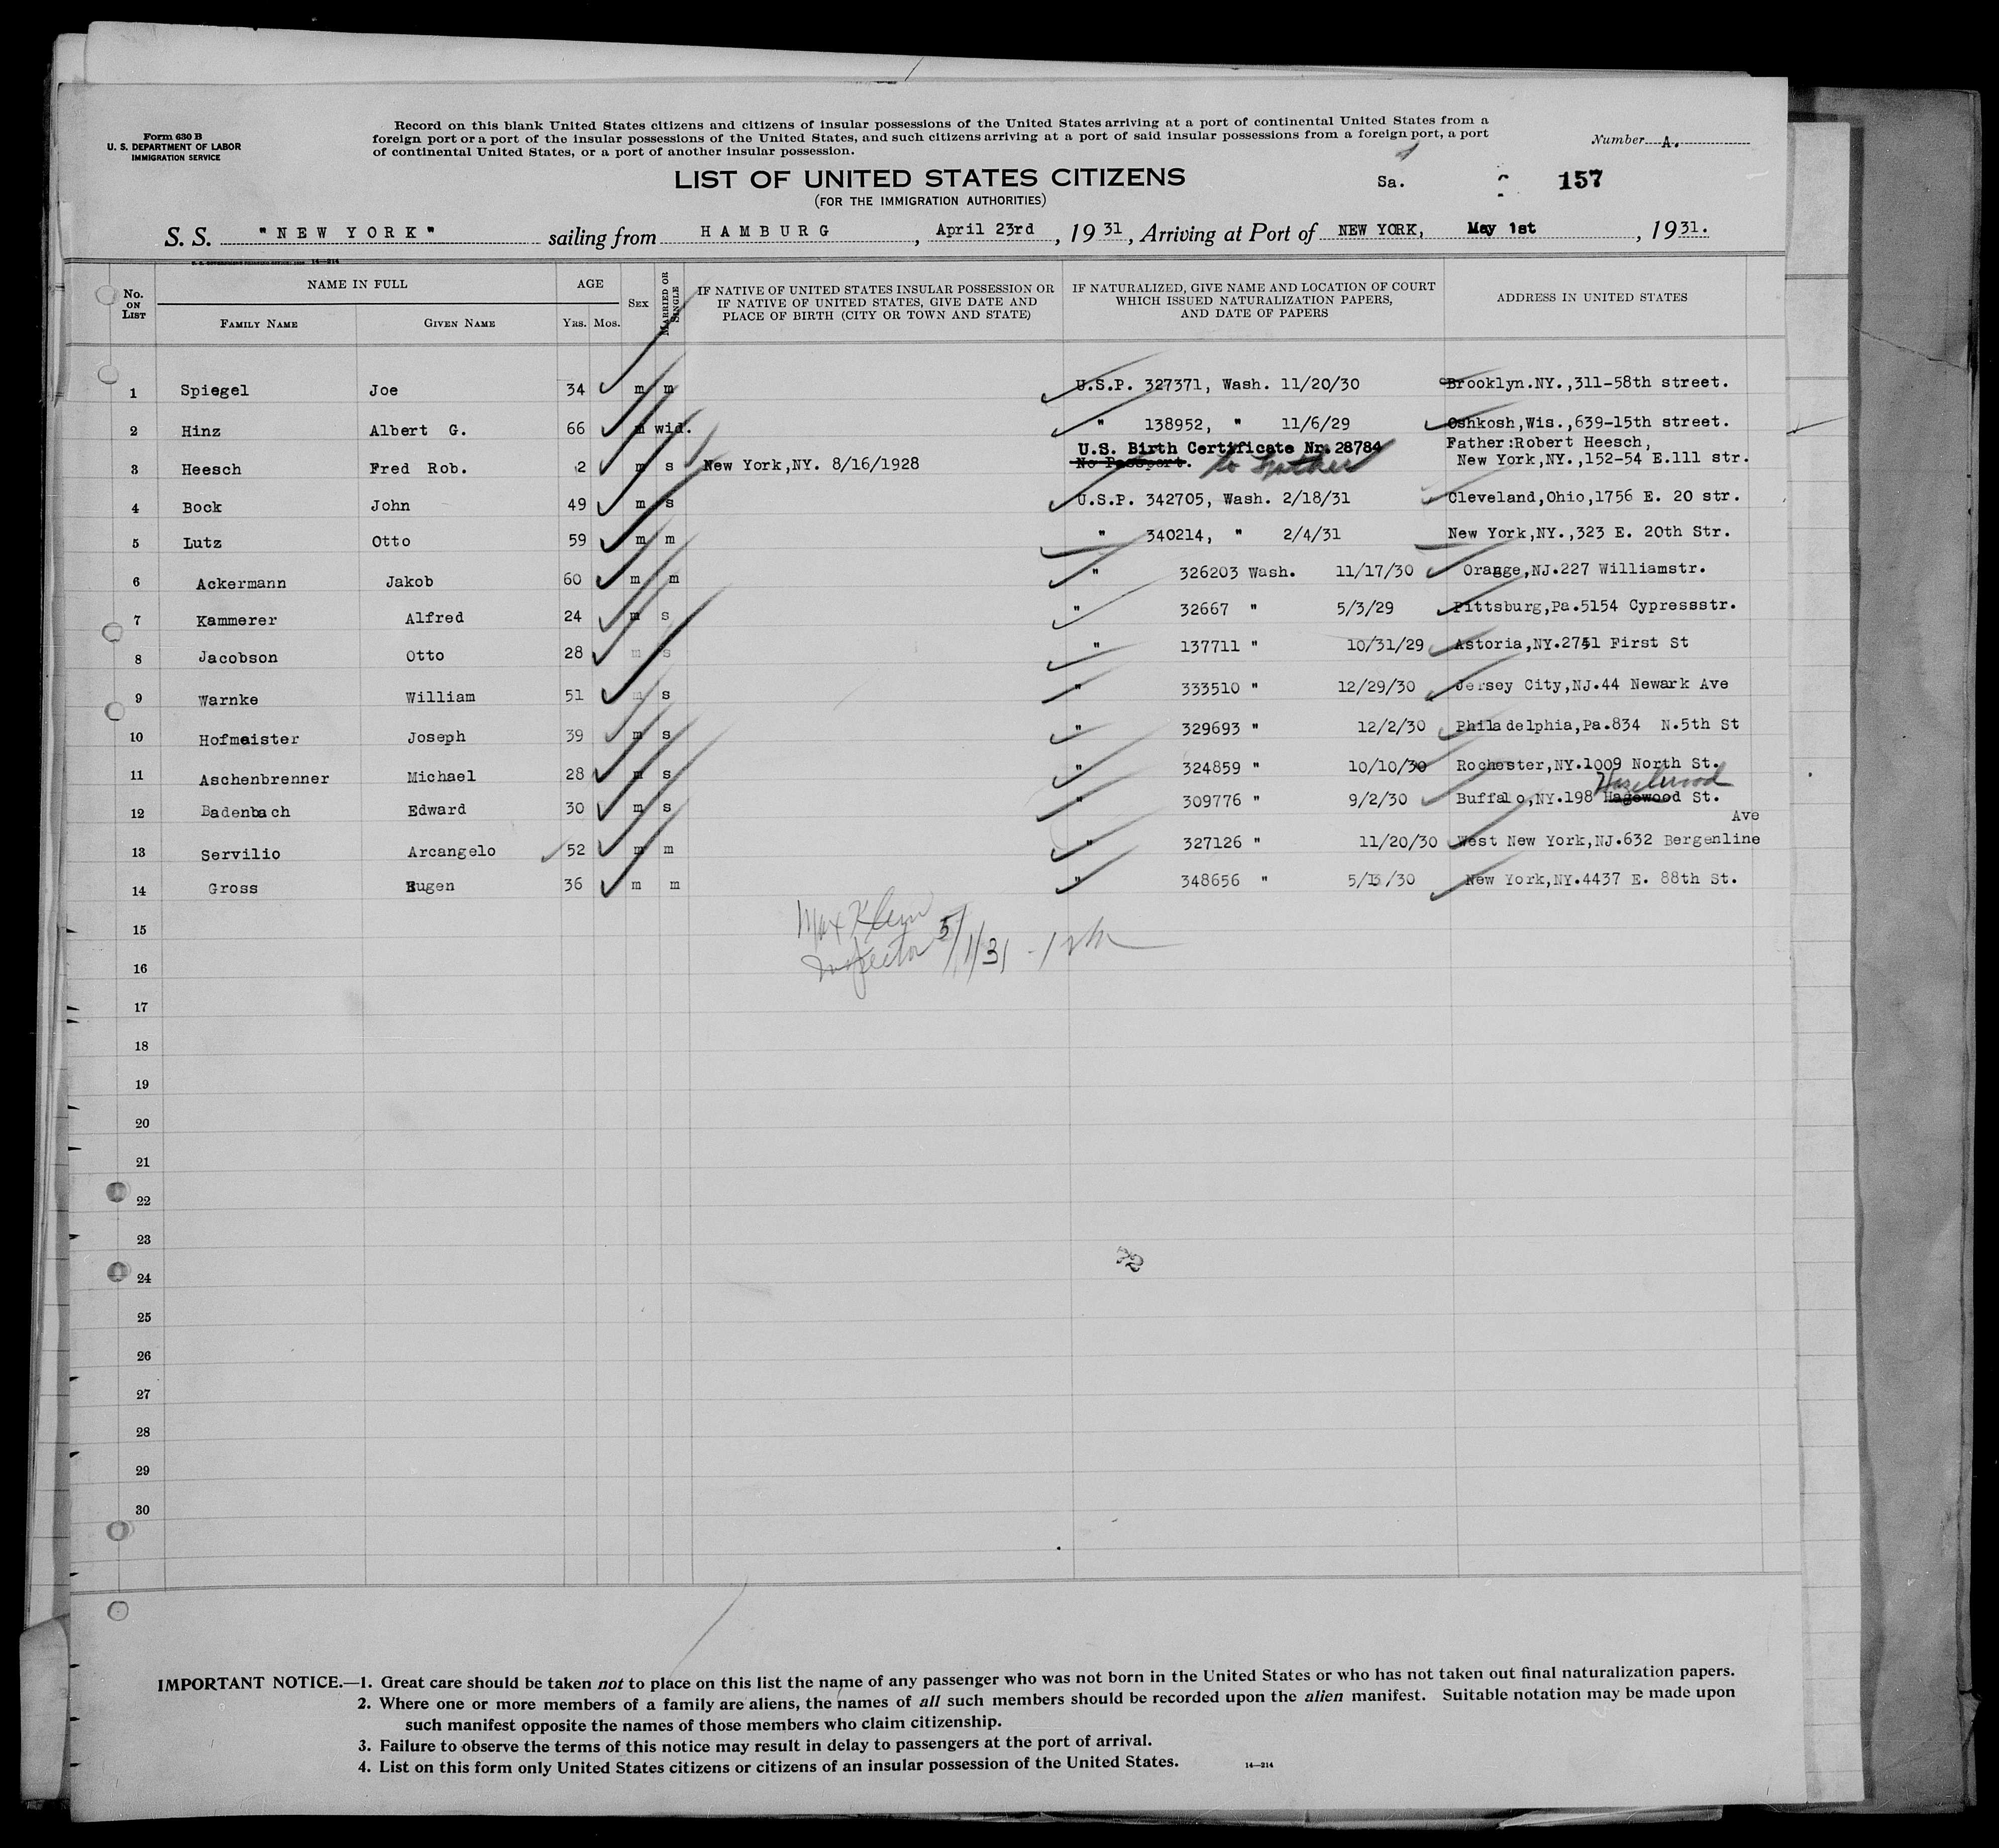 Form 630 B
U. S. DEPARTMENT OF LABOR
IMMIGRATION SERVICE
Record on this blank United States citizens and citizens of insular possessions of the United States arriving at a port of continental United States from a
foreign port or a port of the insular possessions of the United States, and such citizens arriving at a port of said insular possessions from a foreign port, a port
of continental United States, or a port of another insular possession.
Number A.
LIST OF UNITED STATES CITIZENS
(FOR THE IMMIGRATION AUTHORITIES)
Sa. 157
S. S. "NEW YORK" sailing from HAMBURG, April 23rd, 1931, Arriving at Port of NEW YORK, May 1st, 1931.
No. ON LIST
NAME IN FULL
FAMILY NAME GIVEN NAME
AGE
YRS. MOS.
SEX
MARRIED OR SINGLE
IF NATIVE OF UNITED STATES INSULAR POSSESSION OR
IF NATIVE OF UNITED STATES, GIVE DATE AND
PLACE OF BIRTH (CITY OR TOWN AND STATE)
IF NATURALIZED, GIVE NAME AND LOCATION OF COURT
WHICH ISSUED NATURALIZATION PAPERS,
AND DATE OF PAPERS
ADDRESS IN UNITED STATES
1 Spiegel Joe 34 m m U.S.P. 327371, Wash. 11/20/30 Brooklyn.NY.,311-58th street.
2 Hinz Albert G. 66 m wid. " 138952, " 11/6/29 Oshkosh,Wis.,639-15th street.
U.S. Birth Certificate Nr. 28784 Father:Robert Heesch,
3 Heesch Fred Rob. 2 m s New York,NY. 8/16/1928 No Passport. New York,NY.,152-54 E.111 str.
4 Bock John 49 m s U.S.P. 342705, Wash. 2/18/31 Cleveland,Ohio,1756 E. 20 str.
5 Lutz Otto 59 m m " 340214, " 2/4/31 New York,NY.,323 E. 20th Str.
6 Ackermann Jakob 60 m m " 326203 Wash. 11/17/30 Orange,NJ.227 Williamstr.
7 Kammerer Alfred 24 m s " 32667 " 5/3/29 Pittsburg,Pa.5154 Cypressstr.
8 Jacobson Otto 28 m s " 137711 " 10/31/29 Astoria,NY.2741 First St
9 Warnke William 51 m s " 333510 " 12/29/30 Jersey City,NJ.44 Newark Ave
10 Hofmeister Joseph 39 m s " 329693 " 12/2/30 Philadelphia,Pa.834 N.5th St
11 Aschenbrenner Michael 28 m s " 324859 " 10/10/30 Rochester,NY.1009 North St.
Hazelwood
12 Badenbach Edward 30 m s " 309776 " 9/2/30 Buffalo,NY.198 Hagewood St.
Ave
13 Servilio Arcangelo 52 m m " 327126 " 11/20/30 West New York,NJ.632 Bergenline
14 Gross Eugen 36 m m " 348656 " 5/13/30 New York,NY.4437 E. 88th St.
Max Klein
15
Inspector 5/1/31
16
17
18
19
20
21
22
23
24
25
26
27
28
29
30
IMPORTANT NOTICE.—1. Great care should be taken not to place on this list the name of any passenger who was not born in the United States or who has not taken out final naturalization papers.
2. Where one or more members of a family are aliens, the names of all such members should be recorded upon the alien manifest. Suitable notation may be made upon
such manifest opposite the names of those members who claim citizenship.
3. Failure to observe the terms of this notice may result in delay to passengers at the port of arrival.
4. List on this form only United States citizens or citizens of an insular possession of the United States. 14—214